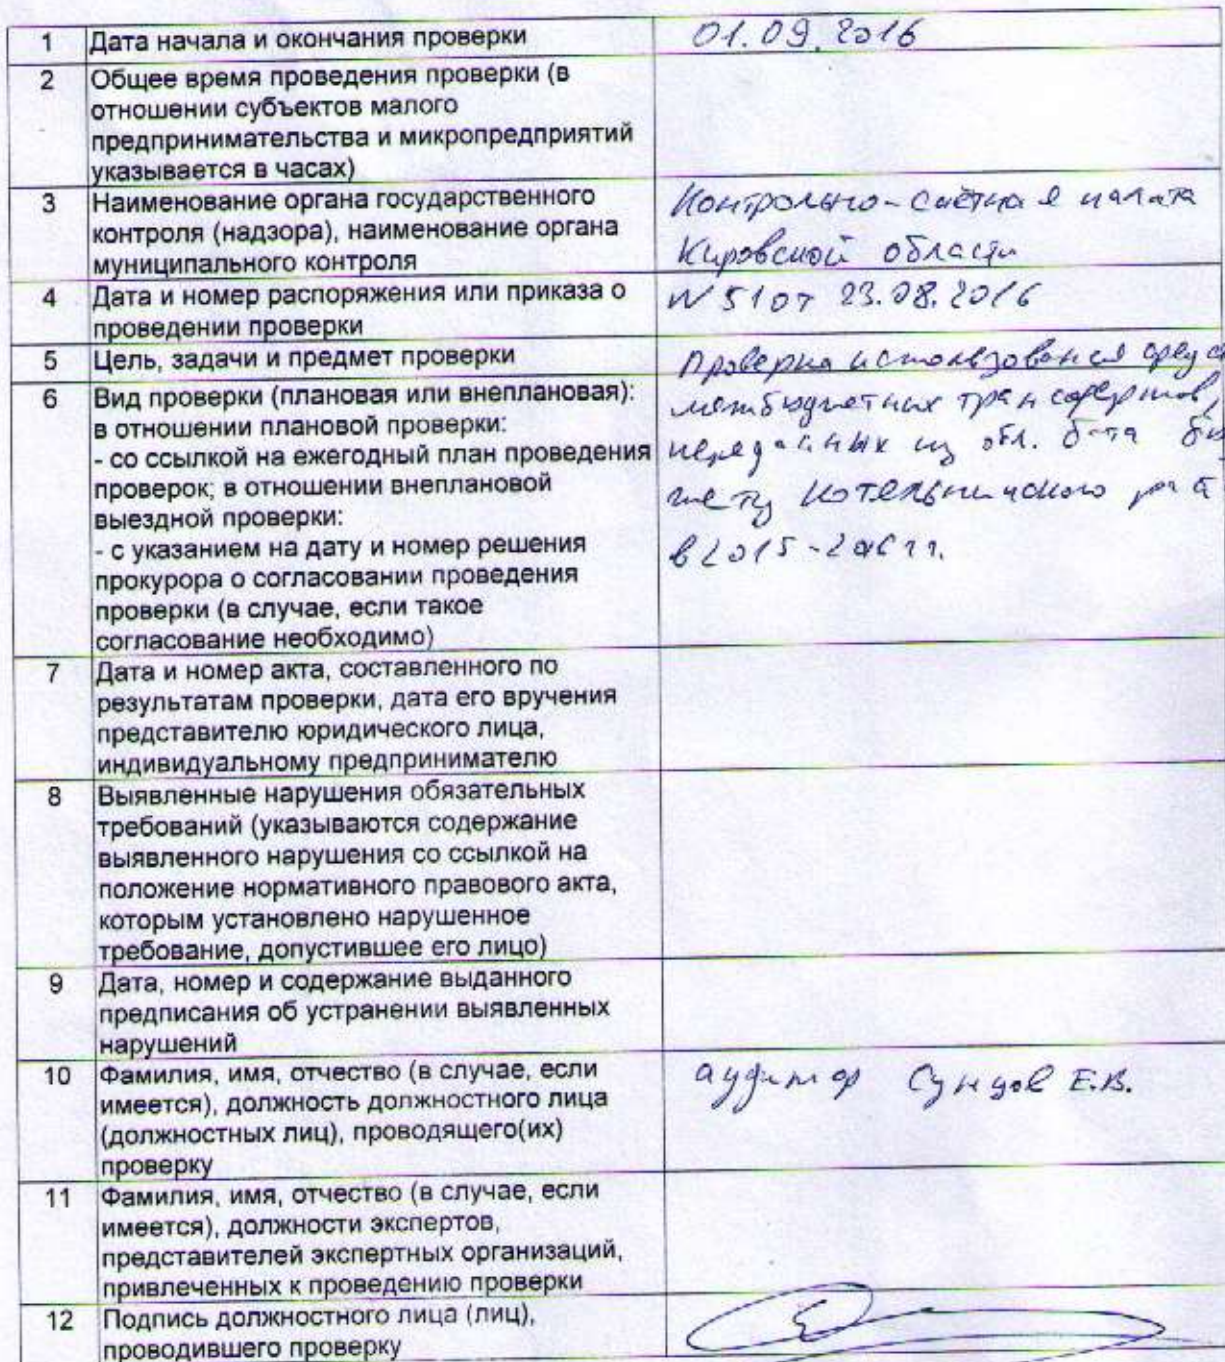 1 Дата начала и окончания проверки 01.09.2016
2 Общее время проведения проверки (в
отношении субъектов малого
предпринимательства и микропредприятий
указывается в часах)
3 Наименование органа государственного Контрольно-счётная палата
контроля (надзора), наименование органа Кировской области
муниципального контроля
4 Дата и номер распоряжения или приказа о N 51 от 23.08.2016
проведении проверки
5 Цель, задачи и предмет проверки Проверка использования средс
6 Вид проверки (плановая или внеплановая): межбюджетных трансфертов,
в отношении плановой проверки:
- со ссылкой на ежегодный план проведения переданных из обл. б-та бюд
проверок; в отношении внеплановой жету Котельничского р-на
выездной проверки:
- с указанием на дату и номер решения в 2015-2016 гг.
прокурора о согласовании проведения
проверки (в случае, если такое
согласование необходимо)
7 Дата и номер акта, составленного по
результатам проверки, дата его вручения
представителю юридического лица,
индивидуальному предпринимателю
8 Выявленные нарушения обязательных
требований (указываются содержание
выявленного нарушения со ссылкой на
положение нормативного правового акта,
которым установлено нарушенное
требование, допустившее его лицо)
9 Дата, номер и содержание выданного
предписания об устранении выявленных
нарушений
10 Фамилия, имя, отчество (в случае, если аудитор Сунцов Е.В.
имеется), должность должностного лица
(должностных лиц), проводящего(их)
проверку
11 Фамилия, имя, отчество (в случае, если
имеется), должности экспертов,
представителей экспертных организаций,
привлеченных к проведению проверки
12 Подпись должностного лица (лиц),
проводившего проверку